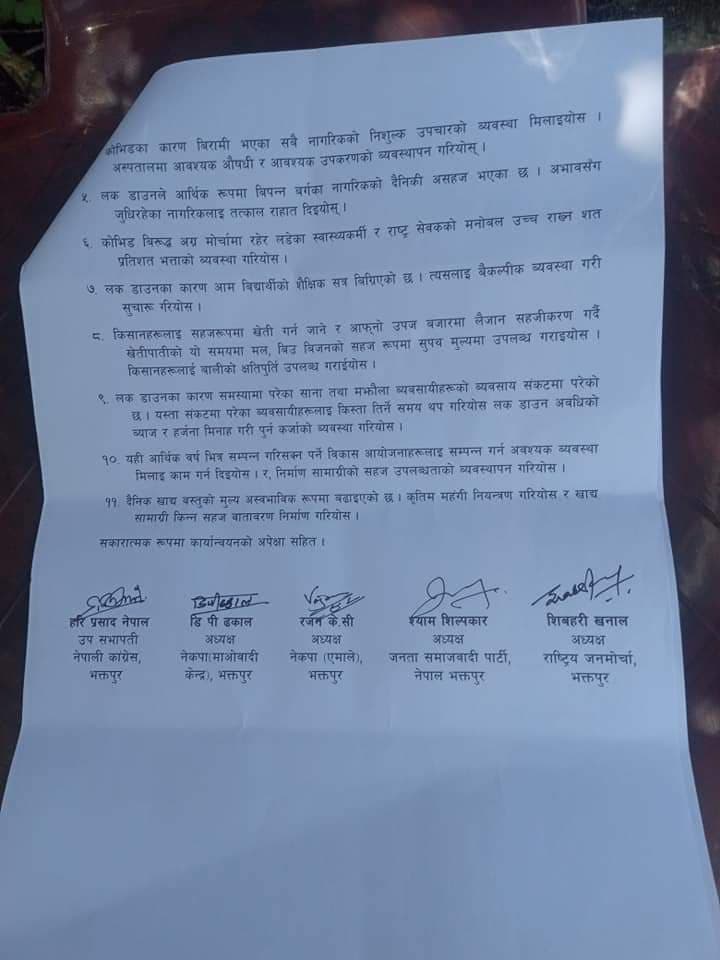 कोभिडका कारण बिरामी भएका सवै नागरिकको निशुल्क उपचारको व्यवस्था मिलाइयोस ।
अस्पतालमा आवश्यक औषधी र आवश्यक उपकरणको व्यवस्थापन गरियोस् ।
५. लक डाउनले आर्थिक रूपमा बिपन्न बर्गका नागरिकको दैनिकी असहज भएका छ । अभावसँग
जुधिरहेका नागरिकलाइ तत्काल राहात दिइयोस् ।
६. कोभिड बिरूद्ध अग्र मोर्चामा रहेर लडेका स्वास्थ्यकर्मी र राष्ट्र सेवकको मनोबल उच्च राख्न शत
प्रतिशत भत्ताको ब्यवस्था गरियोस ।
७. लक डाउनका कारण आम बिद्यार्थीको शैक्षिक सत्र बिग्रिएको छ । त्यसलाइ बैकल्पीक ब्यवस्था गरी
सुचारू गरियोस ।
८. किसानहरूलाइ सहजरूपमा खेती गर्न जाने र आफ्नो उपज बजारमा लैजान सहजीकरण गर्दै
खेतीपातीको यो समयमा मल, बिउ बिजनको सहज रूपमा सुपथ मुल्यमा उपलब्ध गराइयोस ।
किसानहरूलाई बालीको क्षतिपुर्ति उपलब्ध गराईयोस ।
९. लक डाउनका कारण समस्यामा परेका साना तथा मझौला ब्यवसायीहरूको ब्यवसाय संकटमा परेको
छ । यस्ता संकटमा परेका ब्यवसायीहरूलाई किस्ता तिर्ने समय थप गरियोस लक डाउन अवधिको
ब्याज र हर्जना मिनाह गरी पुर्न कर्जाको ब्यवस्था गरियोस ।
१०. यही आर्थिक बर्ष भित्र सम्पन्न गरिसक्न पर्ने बिकास आयोजनाहरूलाइ सम्पन्न गर्न अवश्यक ब्यवस्था
मिलाइ काम गर्न दिइयोस । र, निर्माण सामाग्रीको सहज उपलब्धताको ब्यवस्थापन गरियोस ।
११. दैनिक खाद्य बस्तुको मुल्य अस्वभाविक रूपमा बढाइएको छ । कृतिम महंगी नियन्त्रण गरियोस र खाद्य
सामाग्री किन्न सहज बाताबरण निर्माण गरियोस ।
सकारात्मक रूपमा कार्यान्वयनको अपेक्षा सहित ।
हरि प्रसाद नेपाल
उप सभापती
नेपाली कांग्रेस,
भक्तपुर
डि पी ढकाल
अध्यक्ष
नेकपा(माओबादी
केन्द्र), भक्तपुर
रजन के.सी
अध्यक्ष
नेकपा (एमाले),
भक्तपुर
श्याम शिल्पकार
अध्यक्ष
जनता समाजबादी पार्टी,
नेपाल भक्तपुर
शिबहरी खनाल
अध्यक्ष
राष्ट्रिय जनमोर्चा,
भक्तपुर